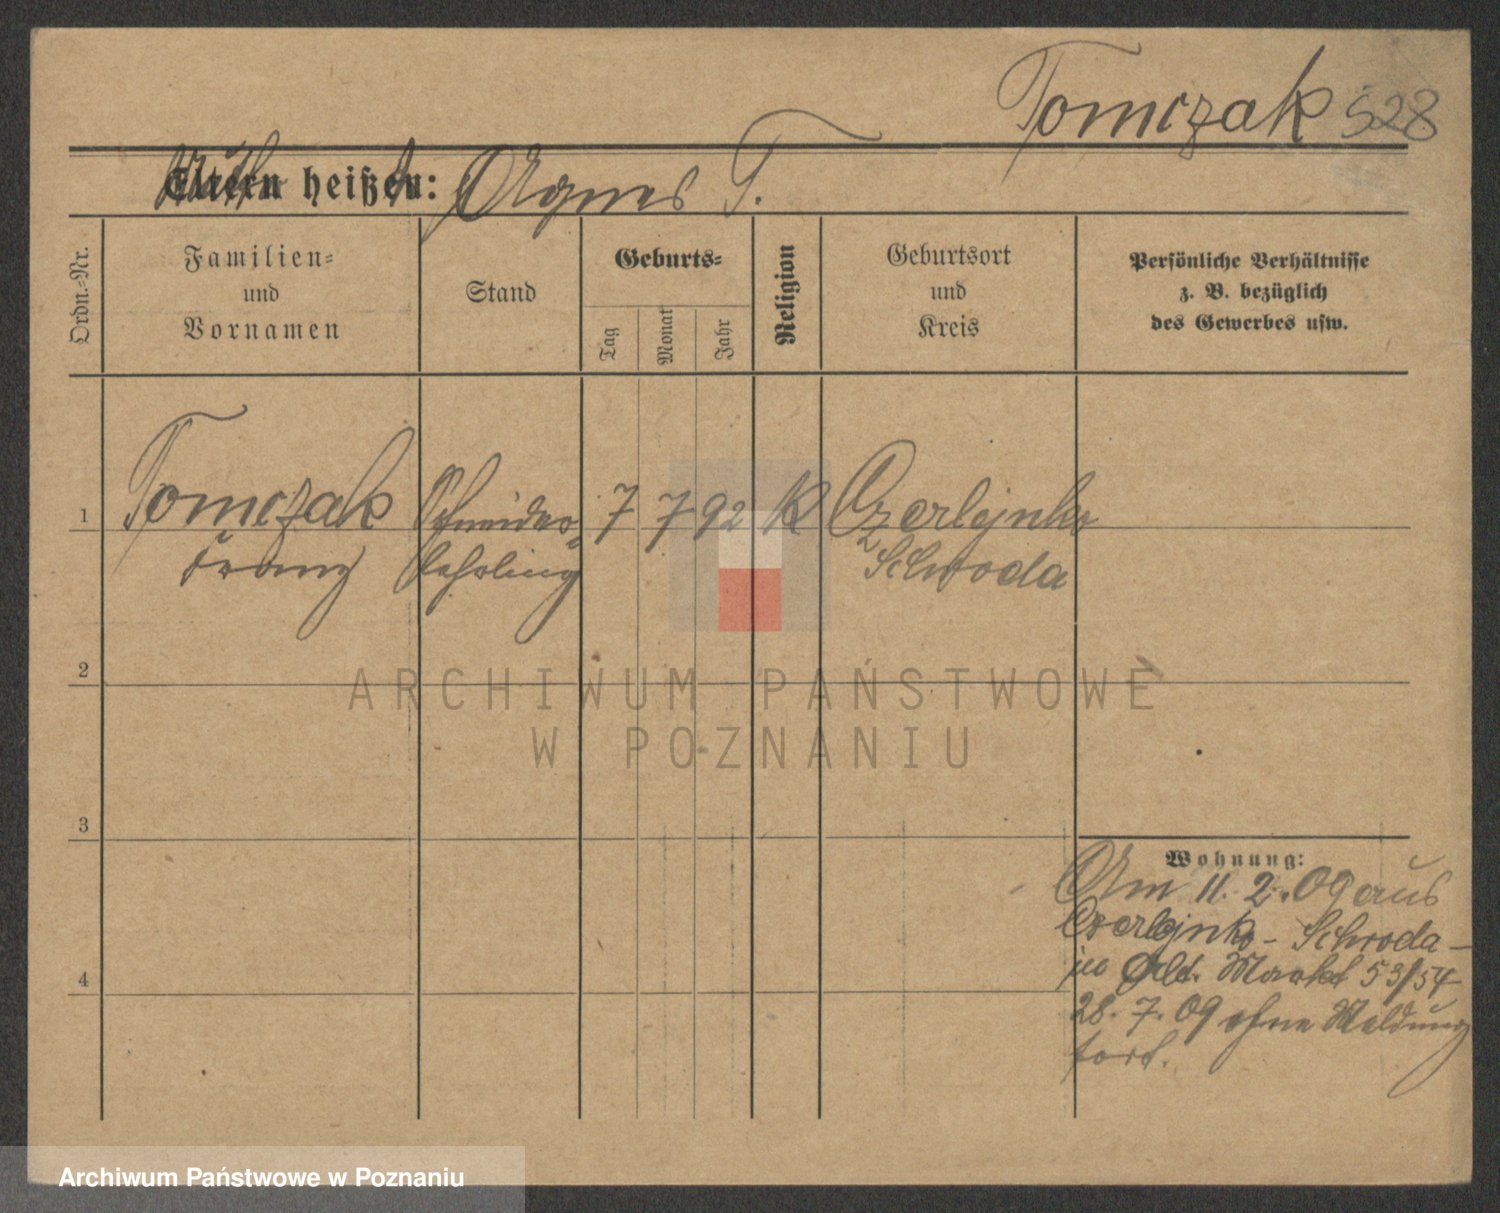 Tomczak 528
Eltern heißen: Agnes T.
Ordn.=Nr.
Familien=
und
Vornamen
Stand
Geburts=
Tag
Monat
Jahr
Religion
Geburtsort
und
Kreis
Persönliche Verhältnisse
z. B. bezüglich
des Gewerbes usw.
1
Tomczak Schneider= 7 7 92 K Czerlejnko
Franz Lehrling Schroda
2
ARCHIWUM PAŃSTWOWE
W POZNANIU
3
Wohnung:
Am 11. 2. 09 aus
Czerlejnko - Schroda -
Markt 53/54
4
28. 7. 09 ohne Meldung
fort.
Archiwum Państwowe w Poznaniu